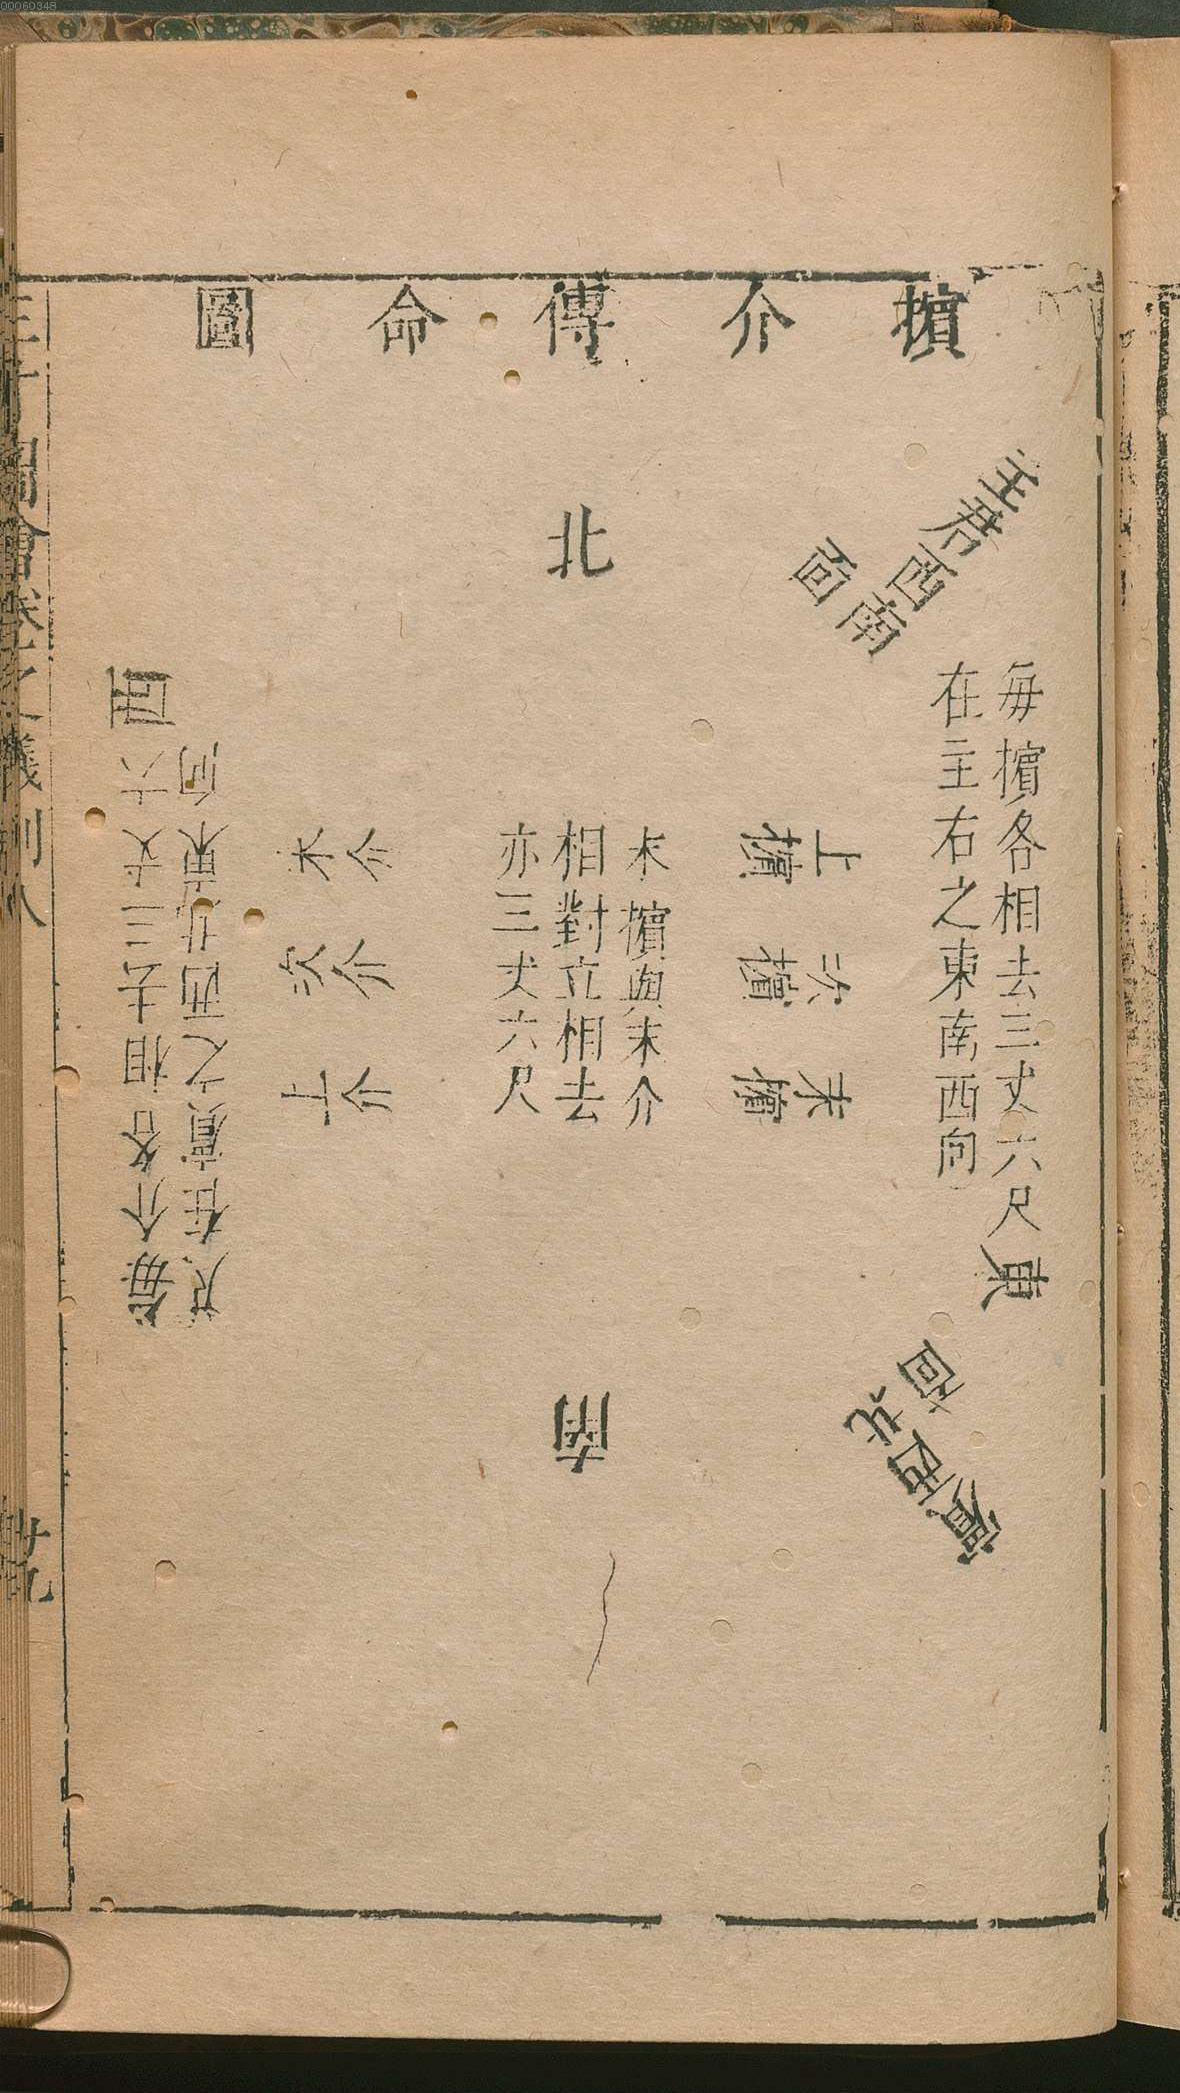 00060348
擯介傳命圖
主君西南面
北
每擯各相去三丈六尺
在主右之東南西向
東
上擯
次擯
末擯
末擯與末介
相對立相去
亦三丈六尺
末介
次介
上介
西
每介各相去三丈六
尺在賓之西北東向
南
賓西北面
三才圖會
卷之
儀制八
廿九